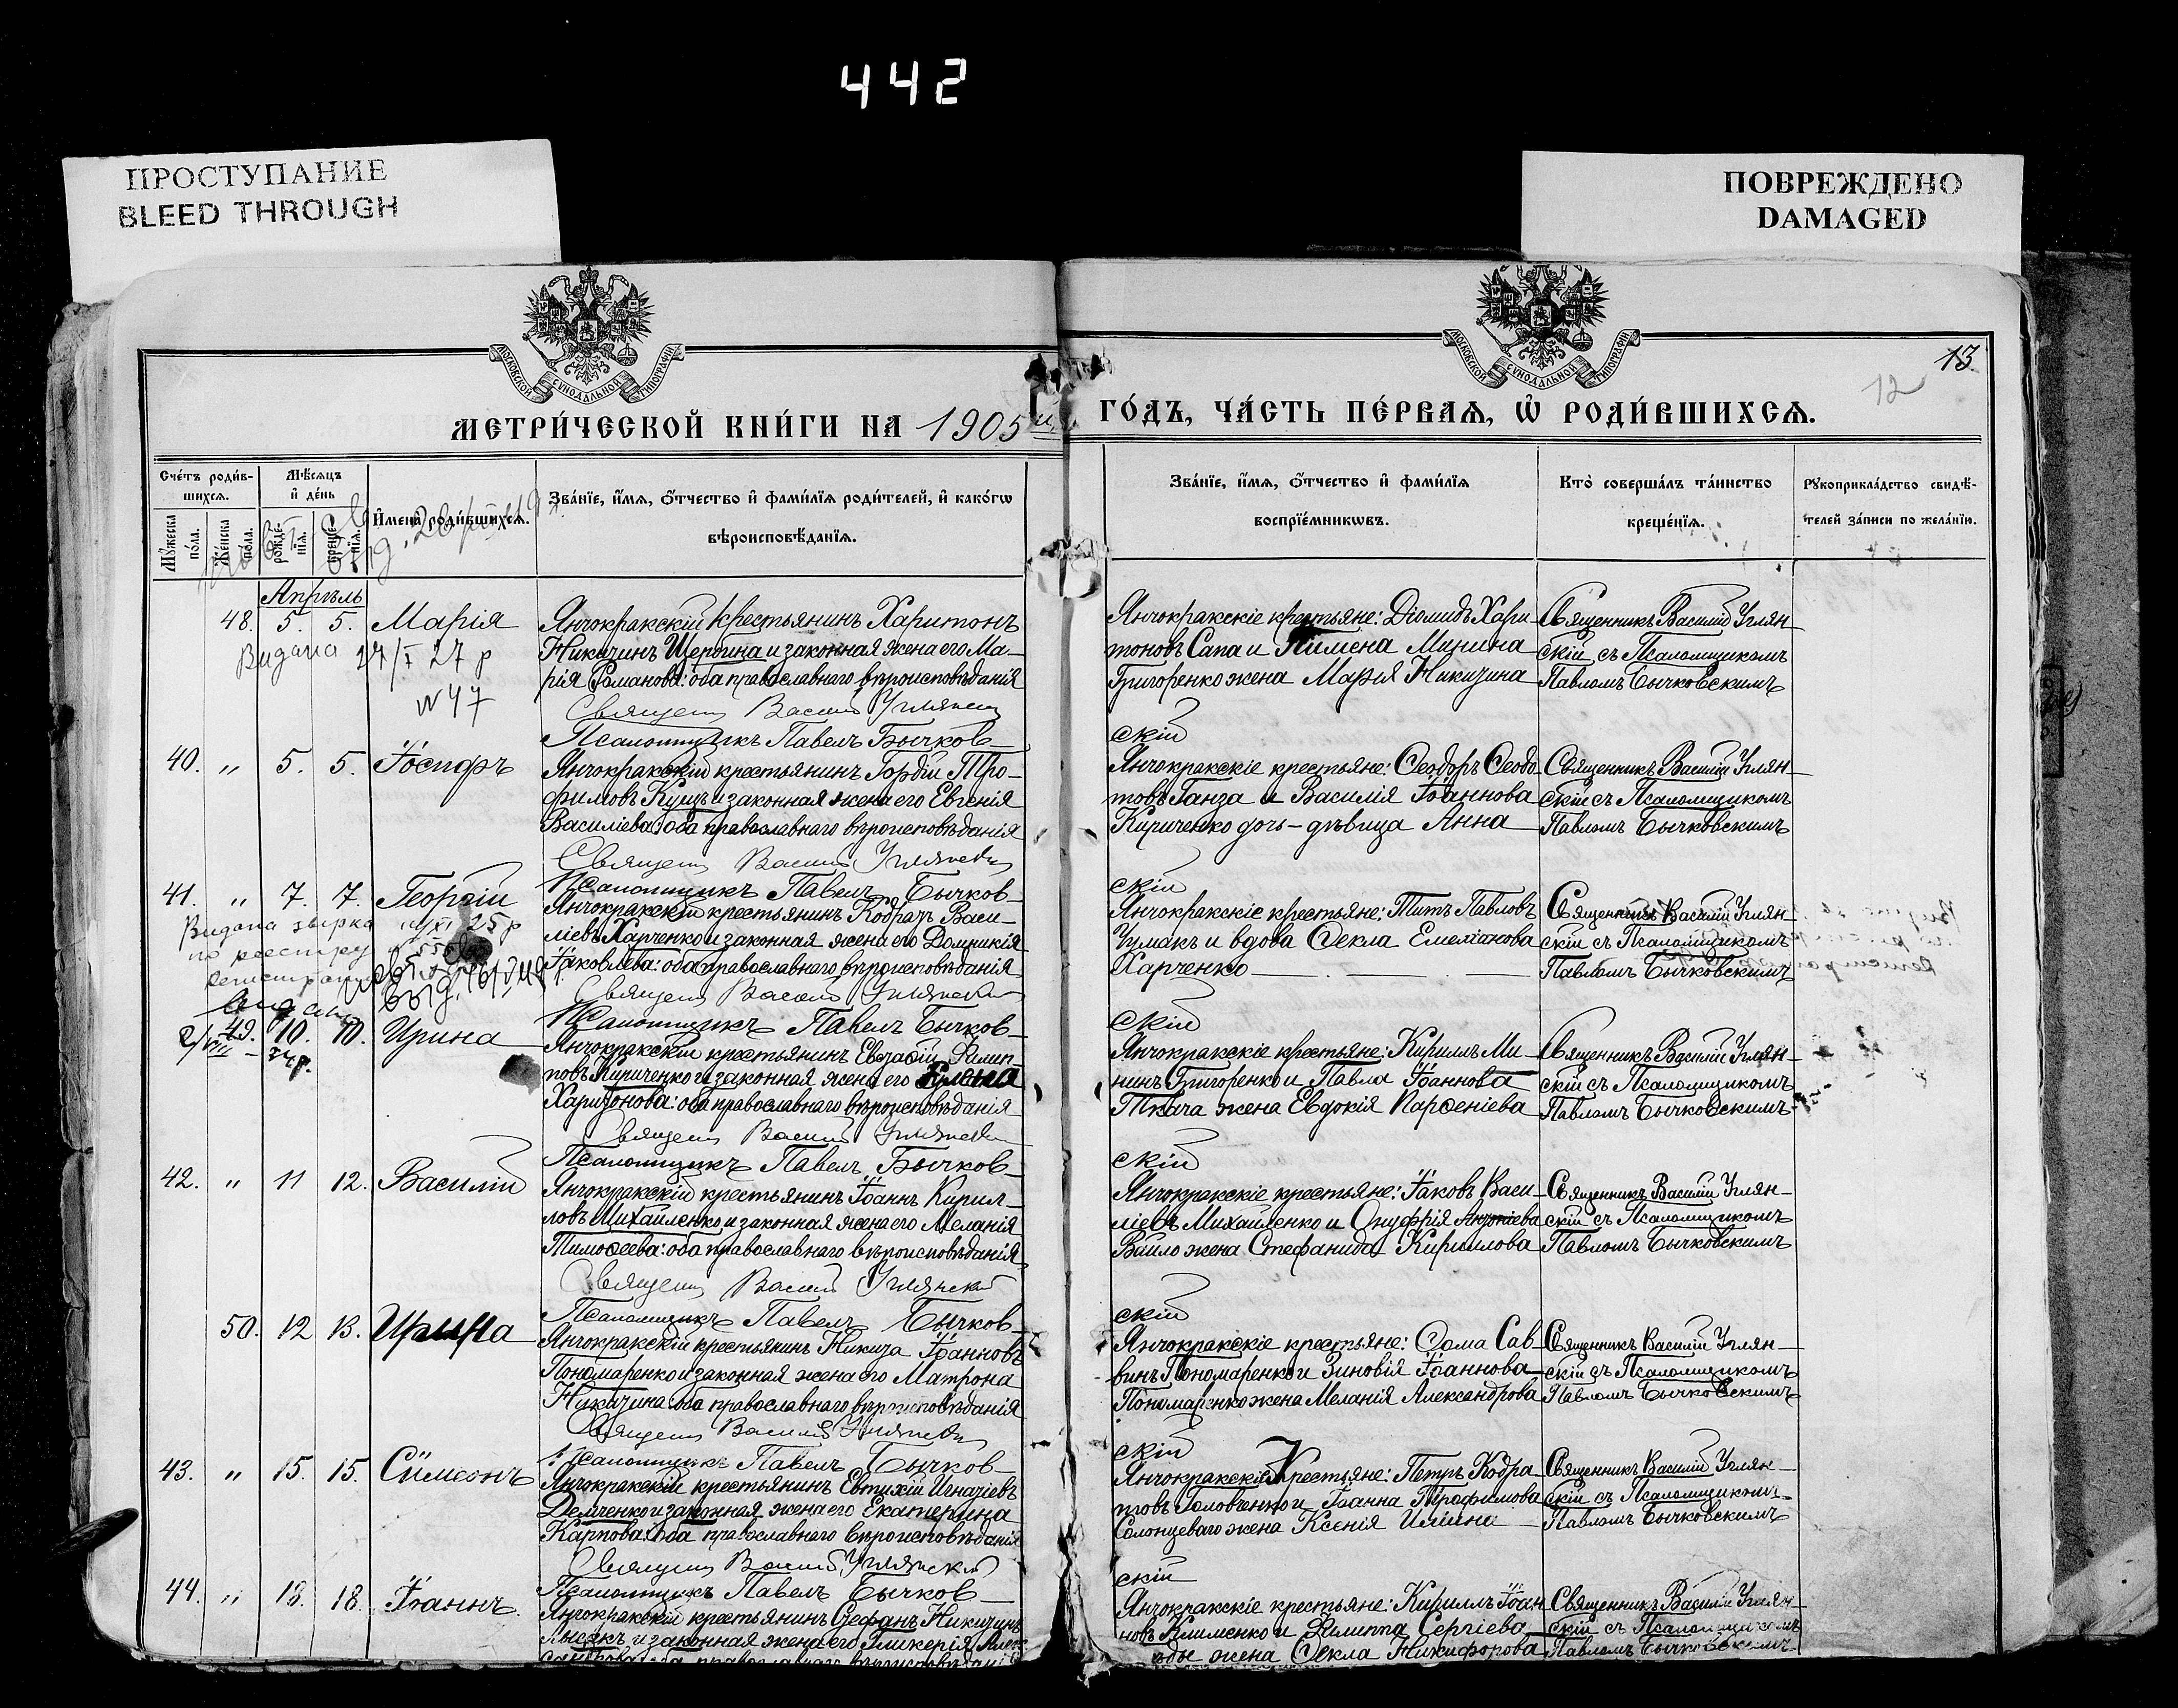 442
ПРОСТУПАНИЕ
BLEED THROUGH
ПОВРЕЖДЕНО
DAMAGED
МОСКОВСКОЙ СѴНОДАЛЬНОЙ ТИПОГРАФІИ
МОСКОВСКОЙ СѴНОДАЛЬНОЙ ТИПОГРАФІИ
13
12
МЕТРИ́ЧЕСКОЙ КНИ́ГИ НА 1905й
ГО́ДЪ, ЧА́СТЬ ПЕ́РВАѦ, Ѡ҆ РОДИ́ВШИХСѦ.
Сче́тъ роди́в-
шихсѧ.
Мꙋ́жеска по́ла.
Же́нска по́ла.
Мѣ́сѧцъ
и҆ де́нь
рожде́-
нїѧ.
креще́-
нїѧ.
И҆мена̀ роди́вшихсѧ.
Зва́нїе, и҆́мѧ, ѻ҆́тчество и҆ фами́лїѧ роди́телей, и҆ како́гѡ
вѣроисповѣ́данїѧ.
Зва́нїе, и҆́мѧ, ѻ҆́тчество и҆ фами́лїѧ
воспрїе́мникѡвъ.
Кто̀ соверша́лъ та́инство
креще́нїѧ.
Рꙋкоприкла́дство свидѣ́-
телей за́писи по жела́нїю.
Апрѣль
48. 5. 5. Марія
Видана 27/I 27 р
№ 47
Янчокракскій крестьянинъ Харитонъ
Никитинъ Щербина и законная жена его Ма-
рія Романова: оба православнаго вѣроисповѣданія
Священ Васил Углянски
Псаломщикъ Павелъ Бычков-
Янчокракскіе крестьяне: Діомидъ Хари-
тоновъ Сапа и Пимена Минина
Григоренко жена Марія Никитина
скій
Священникъ Василій Углян-
скій съ Псаломщикомъ
Павломъ Бычковскимъ
40. " 5. 5. Іосифъ
Янчокракскій крестьянинъ Гордій Тро-
фимовъ Кущъ и законная жена его Евгенія
Василіева: оба православнаго вѣроисповѣданія
Священ Васил Углянски
Псаломщикъ Павелъ Бычков-
Янчокракскіе крестьяне: Ѳеодоръ Ѳеодо-
товъ Ганза и Василія Іоаннова
Кириченко дочь-дѣвица Анна
скій
Священникъ Василій Углян-
скій съ Псаломщикомъ
Павломъ Бычковскимъ
41. " 7. 7. Георгій
Видана 25 р
по реестру
Янчокракскій крестьянинъ Кодратъ Васи-
ліевъ Харченко и законная жена его Домникія
Іаковлева: оба православнаго вѣроисповѣданія
Священ Васил Углянски
Псаломщикъ Павелъ Бычков-
Янчокракскіе крестьяне: Титъ Павловъ
Чумакъ и вдова Ѳекла Емеліанова
Харченко
скій
Священникъ Василій Углян-
скій съ Псаломщикомъ
Павломъ Бычковскимъ
49. 10. 10. Ирина
Янчокракскій крестьянинъ Евстафій Филип-
повъ Кириченко и законная жена его Елена
Харитонова: оба православнаго вѣроисповѣданія
Священ Васил Углянски
Псаломщикъ Павелъ Бычков-
Янчокракскіе крестьяне: Кириллъ Ми-
нинъ Григоренко и Павла Іоаннова
Ткача жена Евдокія Парѳеніева
скій
Священникъ Василій Углян-
скій съ Псаломщикомъ
Павломъ Бычковскимъ
42. " 11 12. Василій
Янчокракскій крестьянинъ Іоаннъ Кирил-
ловъ Михайленко и законная жена его Меланія
Тимоѳеева: оба православнаго вѣроисповѣданія
Священ Васил Углянский
Псаломщикъ Павелъ Бычков-
Янчокракскіе крестьяне: Іаковъ Васи-
ліевъ Михайленко и Онуфрія Антоніева
жена Стефанида Кириллова
скій
Священникъ Василій Углян-
скій съ Псаломщикомъ
Павломъ Бычковскимъ
50. 12 13. Ирина
Янчокракскій крестьянинъ Никита Іоанновъ
Пономаренко и законная жена его Матрона
Никитина: оба православнаго вѣроисповѣданія
Священ Васил Углянски
Псаломщикъ Павелъ Бычков-
Янчокракскіе крестьяне: Ѳома Сав-
винъ Пономаренко и Зиновія Іоаннова
Пономаренко жена Меланія Александрова
скій
Священникъ Василій Углян-
скій съ Псаломщикомъ
Павломъ Бычковскимъ
43. " 15. 15. Сѵмеонъ
Янчокракскій крестьянинъ Евтихій Игнатіевъ
Демченко и законная жена его Екатерина
Карпова: оба православнаго вѣроисповѣданія
Священ Васил Углянский
Псаломщикъ Павелъ Бычков-
Янчокракскіе Крестьяне: Петръ Кодра-
товъ Головченко и Іоанна Трофимова
Солонцеваго жена Ксенія Ильина
скій
Священникъ Василій Углян-
скій съ Псаломщикомъ
Павломъ Бычковскимъ
44. " 18. 18. Іоаннъ
Янчокракскій крестьянинъ Стефанъ Никитинъ
Лысакъ и законная жена его Гликерія Алек-
сандрова: оба православнаго вѣроисповѣданія
Янчокракскіе крестьяне: Кириллъ Іоан-
новъ Клименко и Филиппа Сергіева
жена Ѳекла Никифорова
Священникъ Василій Углян-
скій съ Псаломщикомъ
Павломъ Бычковскимъ